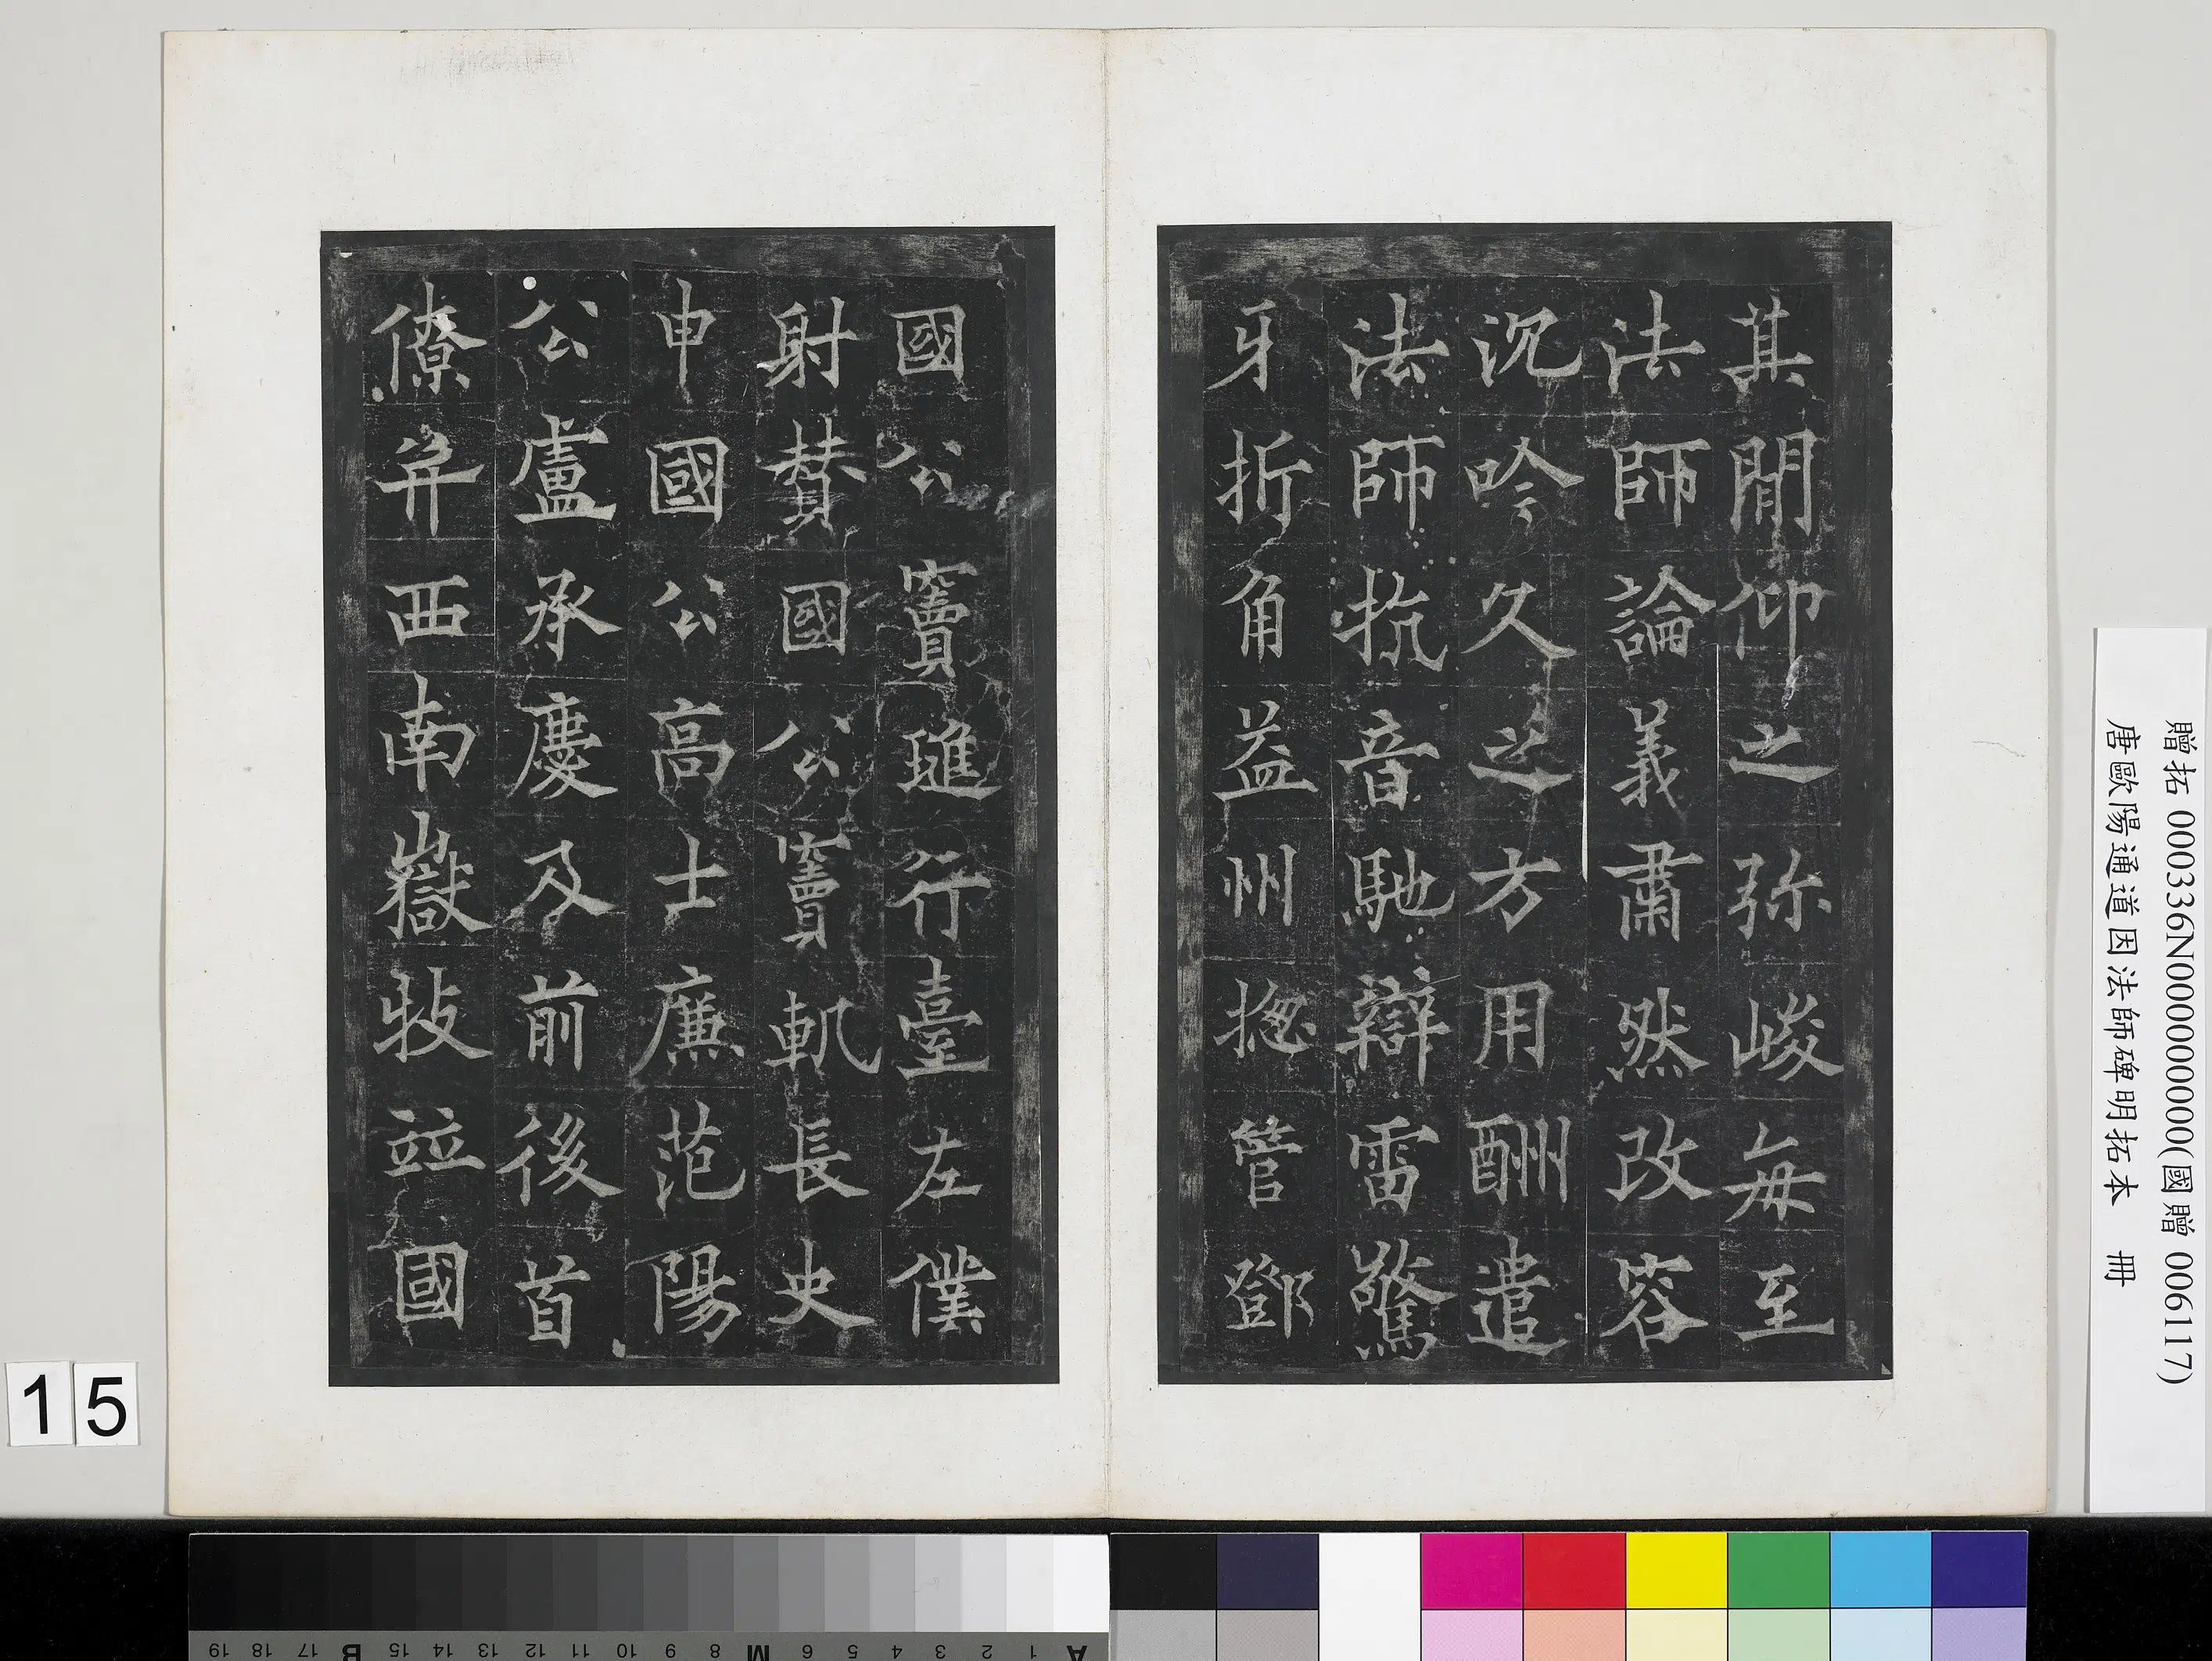 其閒仰之弥峻每至
法師論義肅然改容
沉吟久之方用酬遣
法師抗音馳辯雷驚
牙折角益州捴管鄧
國公竇璡行臺左僕
射賛國公竇軌長史
申國公高士廉范陽
公盧承慶及前後首
僚弁西南嶽牧竝國
贈拓 000336N000000000(國贈 006117)
唐歐陽通道因法師碑明拓本 冊
15
A 1 2 3 4 5 6 M 8 9 10 11 12 13 14 15 B 17 18 19